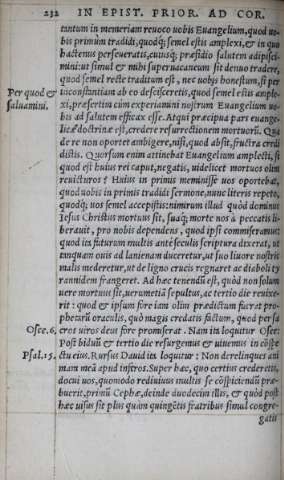 232 IN EPIST. PRIOR. AD COR.
tantum in memoriam reuoco uobis Euangelium, quod uo-
bis primùm tradidi, quodq; semel estis amplexi, & in quo
hactenus perseueratis, cuiusq; præsidio salutem adipisci-
mini: ut simul & mihi superuacaneum sit denuo tradere,
quod semel recte traditum est, nec uobis honestum, si per
Per quod & inconstantiam ab eo descisceretis, quod semel estis ample-
saluamini. xi, præsertim cùm experiamini nostrum Euangelium uo-
bis ad salutem efficax esse. Atqui præcipua pars euange-
licæ doctrinæ est, credere resurrectionem mortuorũ. Qua
de re non oportet ambigere, nisi, quod absit, frustra credi
distis. Quorsum enim attinebat Euangelium amplecti, si
quod est huius rei caput, negatis, uidelicet mortuos olim
reuicturos? Huius in primis meminisse uos oportebat,
quod uobis in primis tradidi sermone, nunc literis repeto,
quodq; uos semel accepistis: nimirum illud quòd dominus
Iesus Christus mortuus sit, suaq; morte nos à peccatis li-
berauit, pro nobis dependens, quod ipsi commiseramus:
quod ita futurum multis antè seculis scriptura dixerat, ut
tanquam ouis ad lanienam duceretur, ut suo liuore nostris
malis mederetur, ut de ligno crucis regnaret ac diaboli ty
rannidem frangeret. Ad hæc tenendũ est, quòd non solum
uere mortuus sit, uerumetiã sepultus, ac tertio die reuixe-
rit: quod & ipsum fore iam olim prædictum fuerat pro-
phetarũ oraculis, quò magis credatis factum, quod per sa
Osee.6. cros uiros deus fore promiserat. Nam ita loquitur Osee:
Post biduũ & tertio die resurgemus & uiuemus in cõspe
Psal.15. ctu eius. Rursus Dauid ita loquitur: Non derelinques ani
mam meã apud inferos. Super hæc, quo certius crederetis,
docui uos, quomodo rediuiuus multis se cõspiciendũ præ-
buerit, primũ Cephæ, deinde duodecim illis, & quòd post
hæc uisus sit plus quàm quingẽtis fratribus simul congre-
gatis